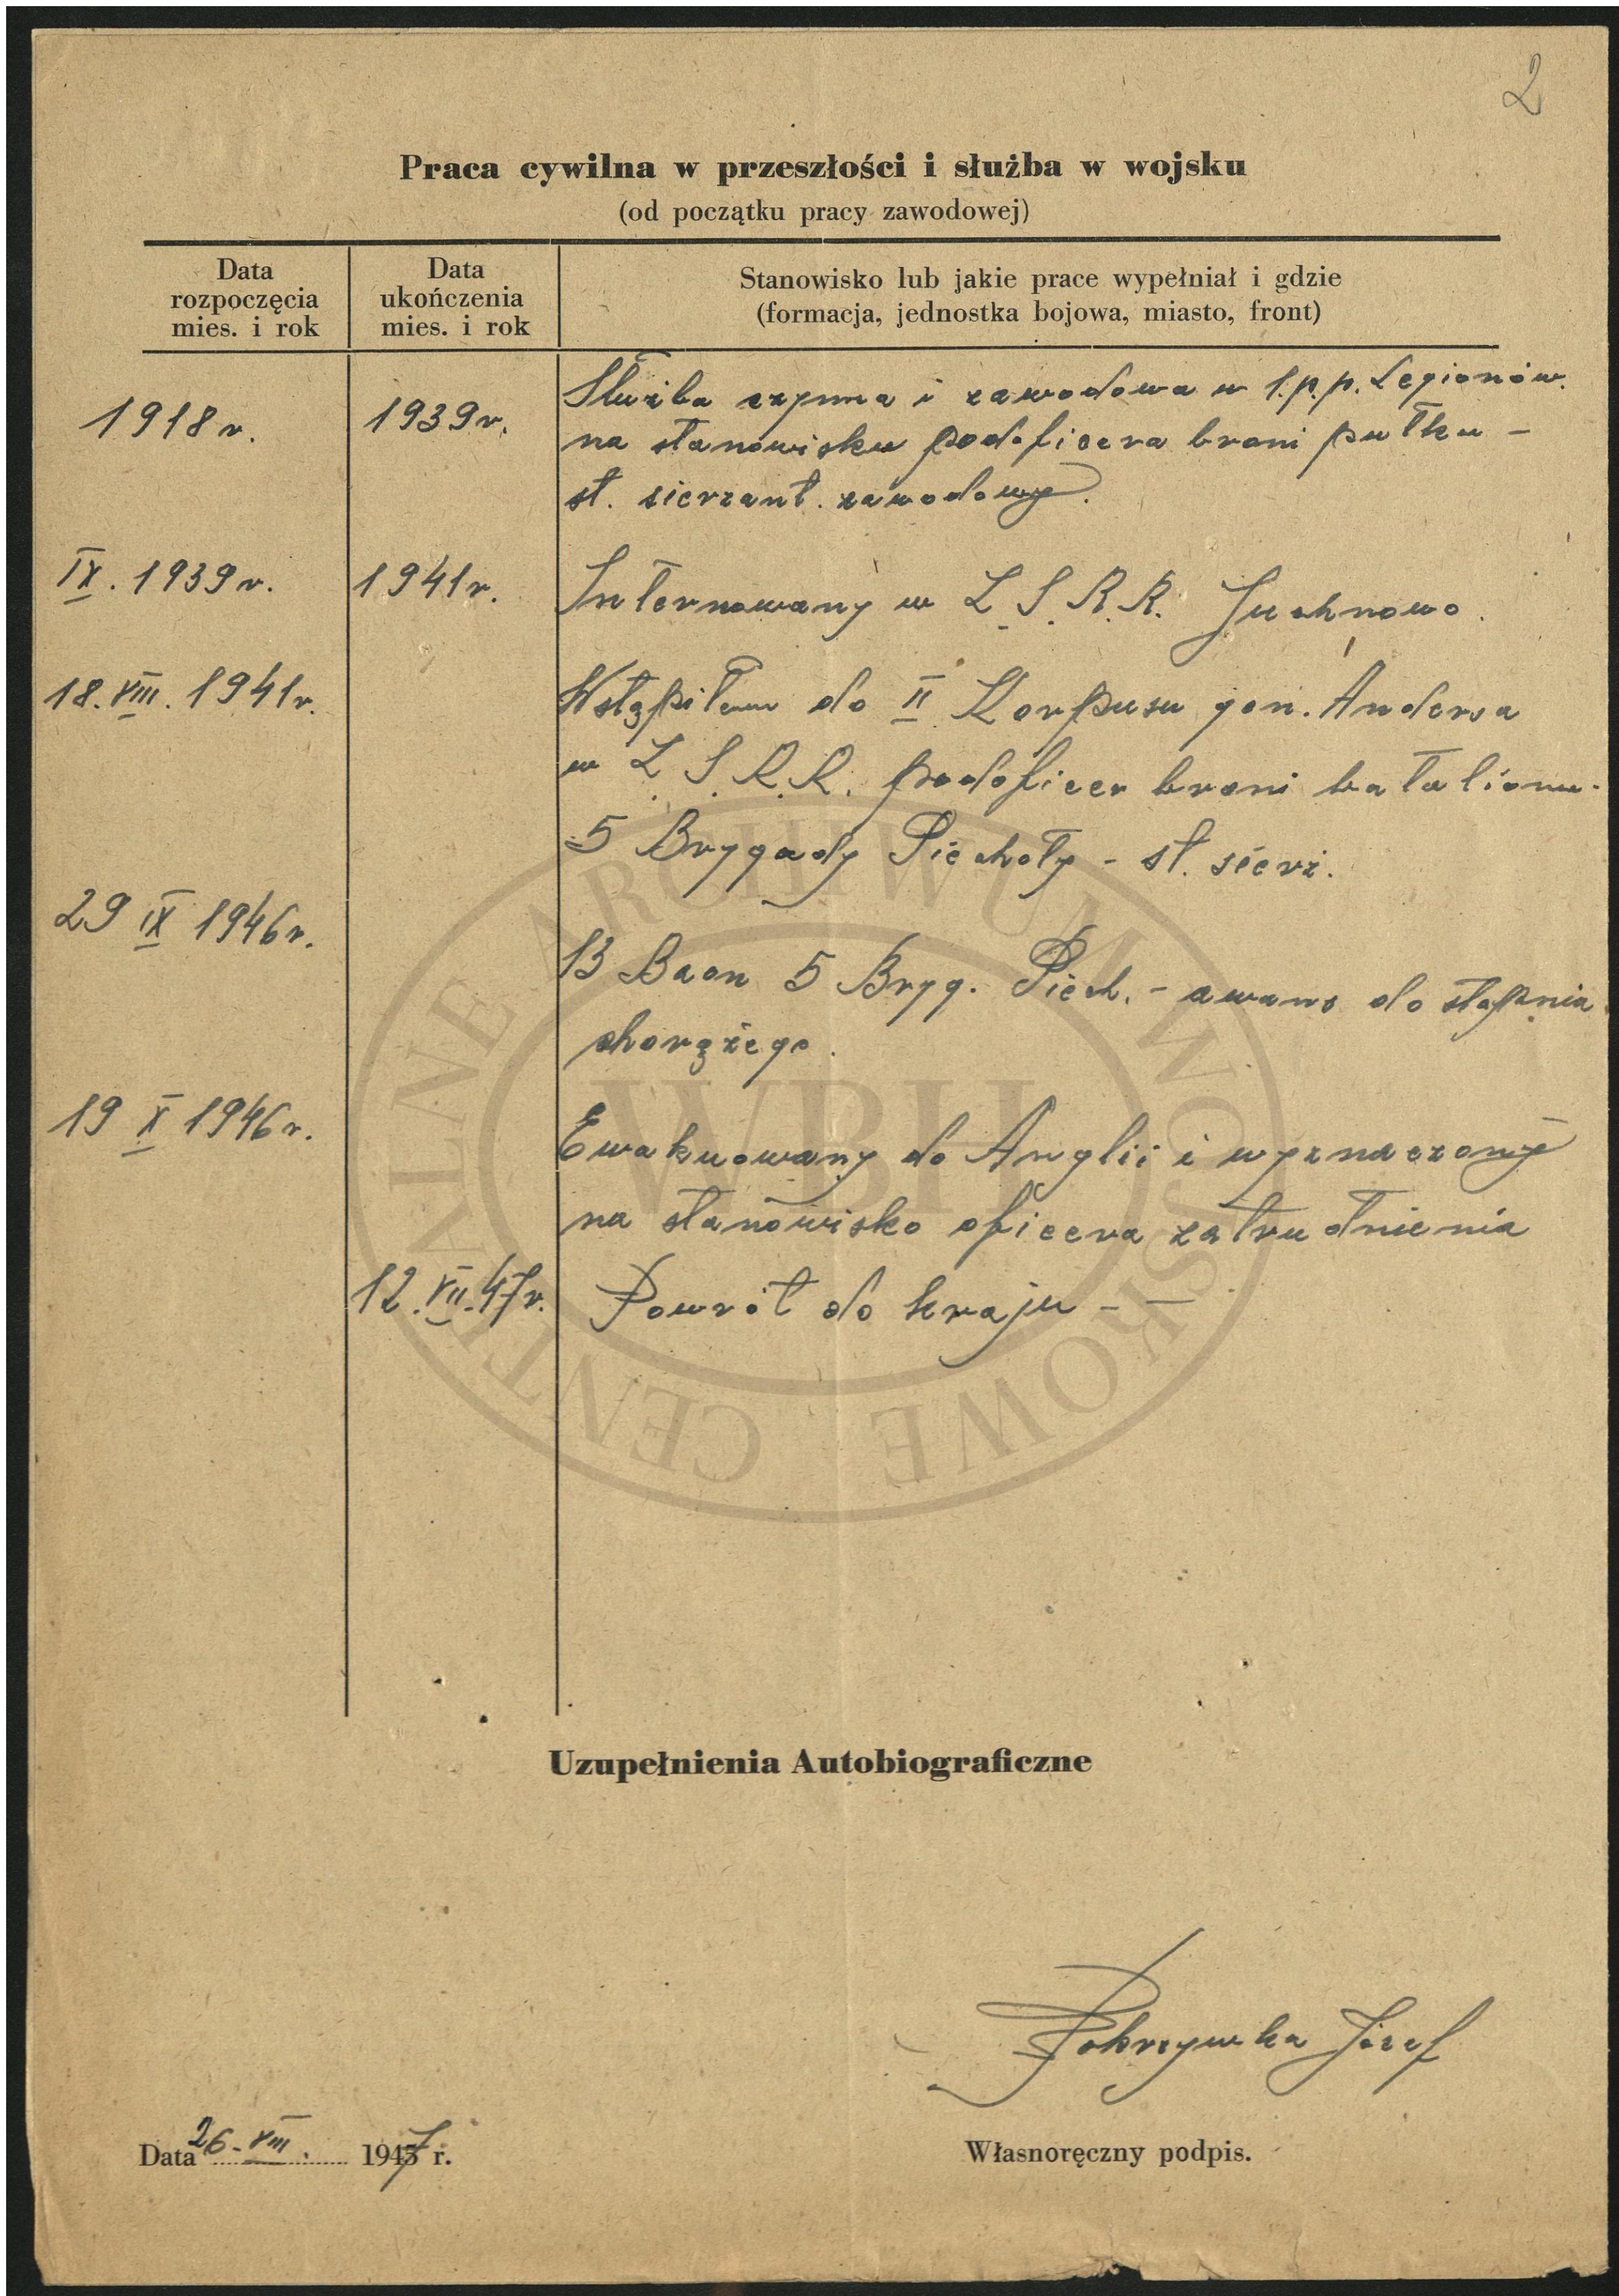 2
Praca cywilna w przeszłości i służba w wojsku
(od początku pracy zawodowej)
Data rozpoczęcia mies. i rok
Data ukończenia mies. i rok
Stanowisko lub jakie prace wypełniał i gdzie
(formacja, jednostka bojowa, miasto, front)
1918 r. 1939 r. Służba czynna i zawodowa w 1.p.p. Legionów.
na stanowisku podoficera broni pułku –
st. sierżant. zawodowy.
IX. 1939 r. 1941 r. Internowany w Z.S.R.R. Juchnowo.
18. VIII. 1941 r. Wstąpiłem do II Korpusu gen. Andersa
w Z.S.R.R. podoficer broni batalionu.
5 Brygady Piechoty - st. sierż.
29 IX 1946 r. 13 Baon 5 Bryg. Piech. - awans do stopnia
chorążego.
19 X 1946 r. Ewakuowany do Anglii i wyznaczony
na stanowisko oficera zatrudnienia
12. VII. 47 r. Powrót do kraju - –
CENTRALNE ARCHIWUM WOJSKOWE
WBH
Uzupełnienia Autobiograficzne
Pokrzywka Józef
Data 26 - VIII. 1947 r.
Własnoręczny podpis.